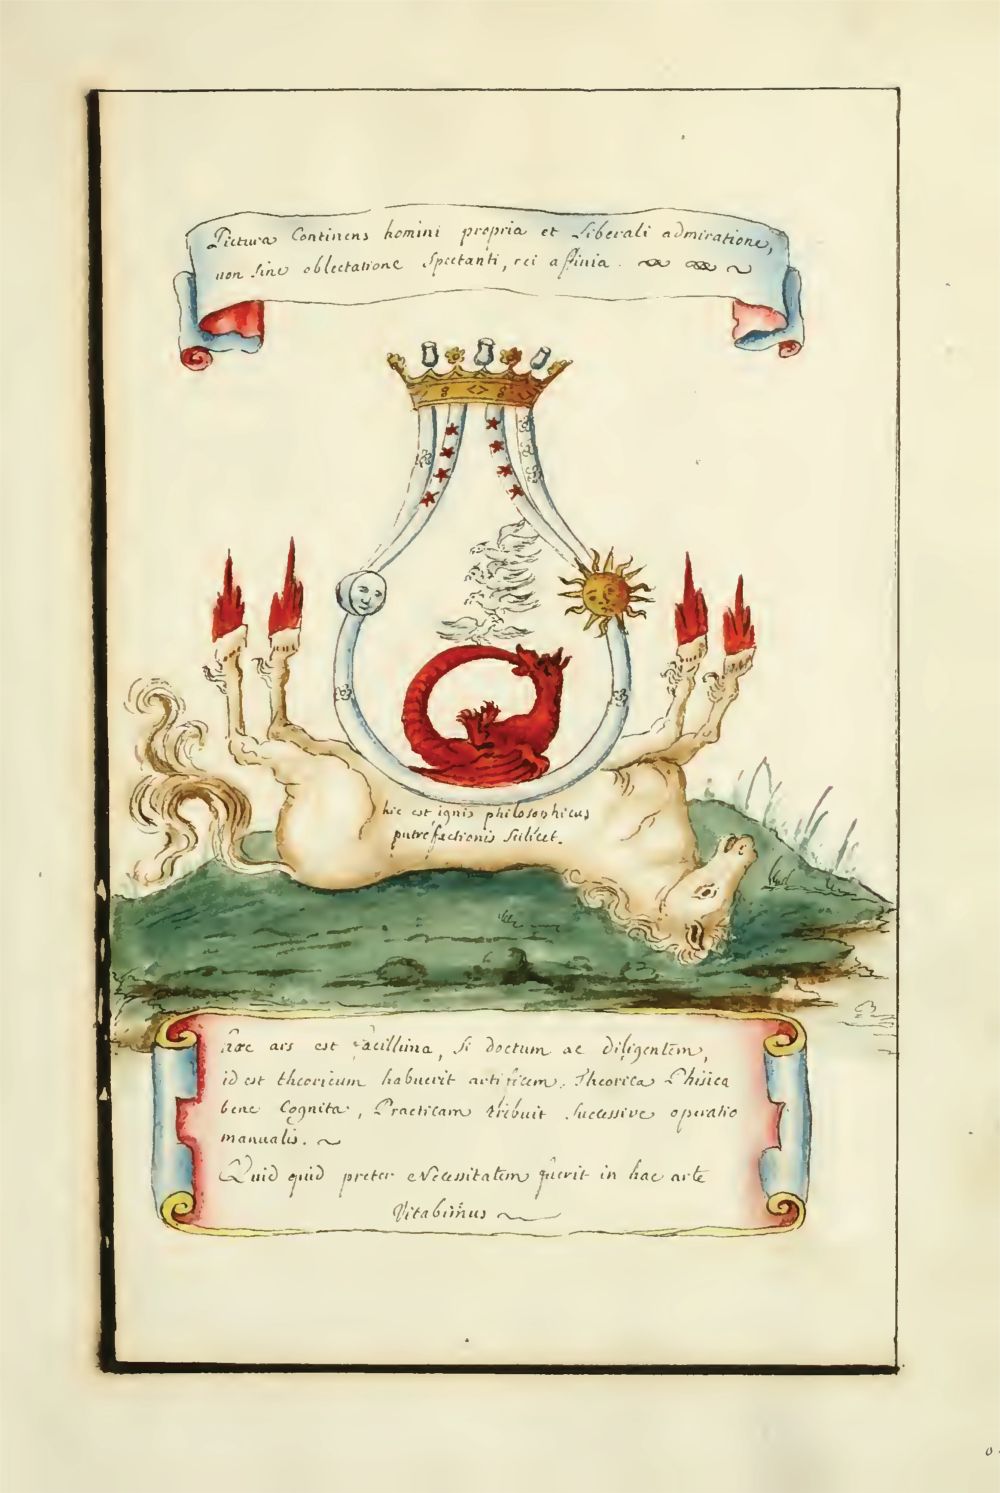 Pictura Continens homini propria et Liberali admiratione,
non sine oblectatione Spectanti, rei affinia.
hic est ignis philosophicus
putrefactionis Scilicet.
Haec ars est facillima, Si doctum ac diligentem,
id est theoricum habuerit artificem. Theorica Phisica
bene Cognita, Practicam tribuit Successive operatio
manualis.
Quid quid preter Necessitatem fuerit in hac arte
Vitabimus